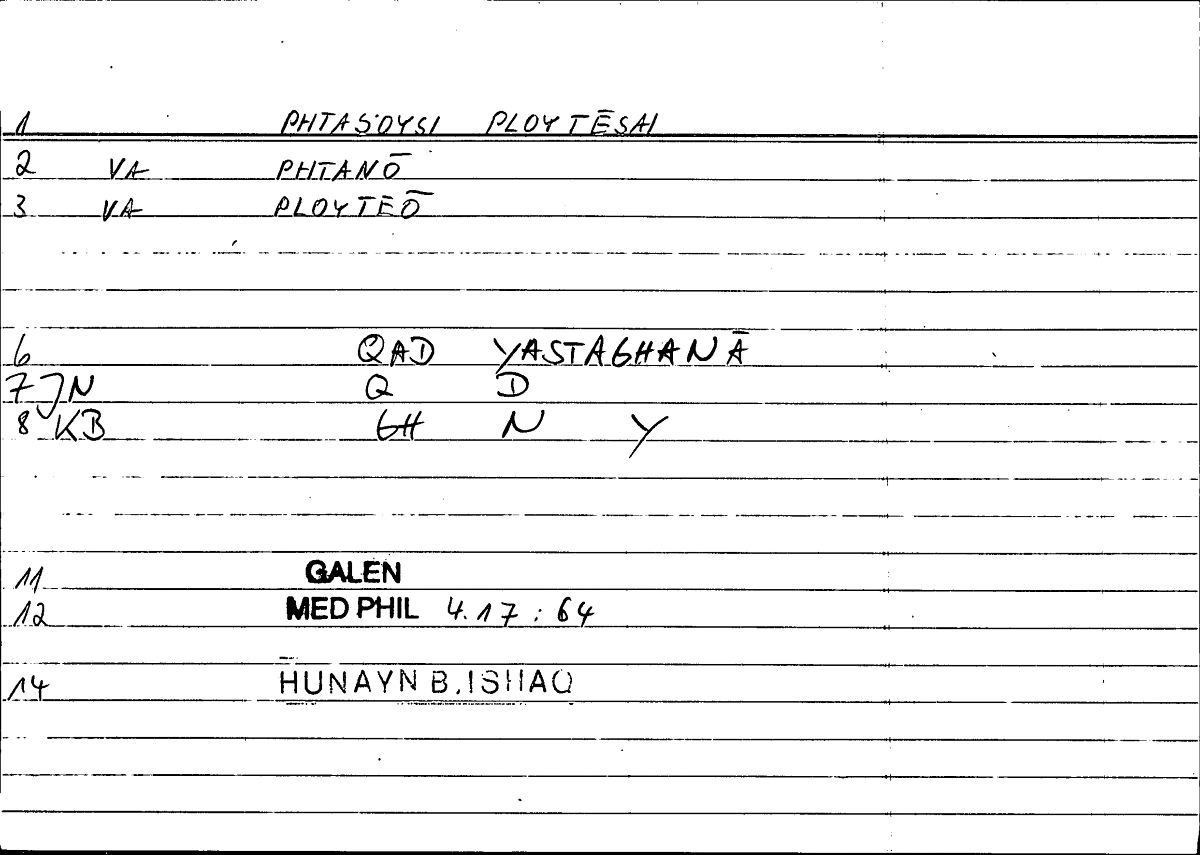 1 PHTASOYSI PLOYTĒSAI
2 VA PHTANŌ
3 VA PLOYTEŌ
6 QAD YASTAGHANĀ
7 JN Q D
8 KB GH N Y
11 GALEN
12 MED PHIL 4.17:64
14 HUNAYN B.ISHAQ